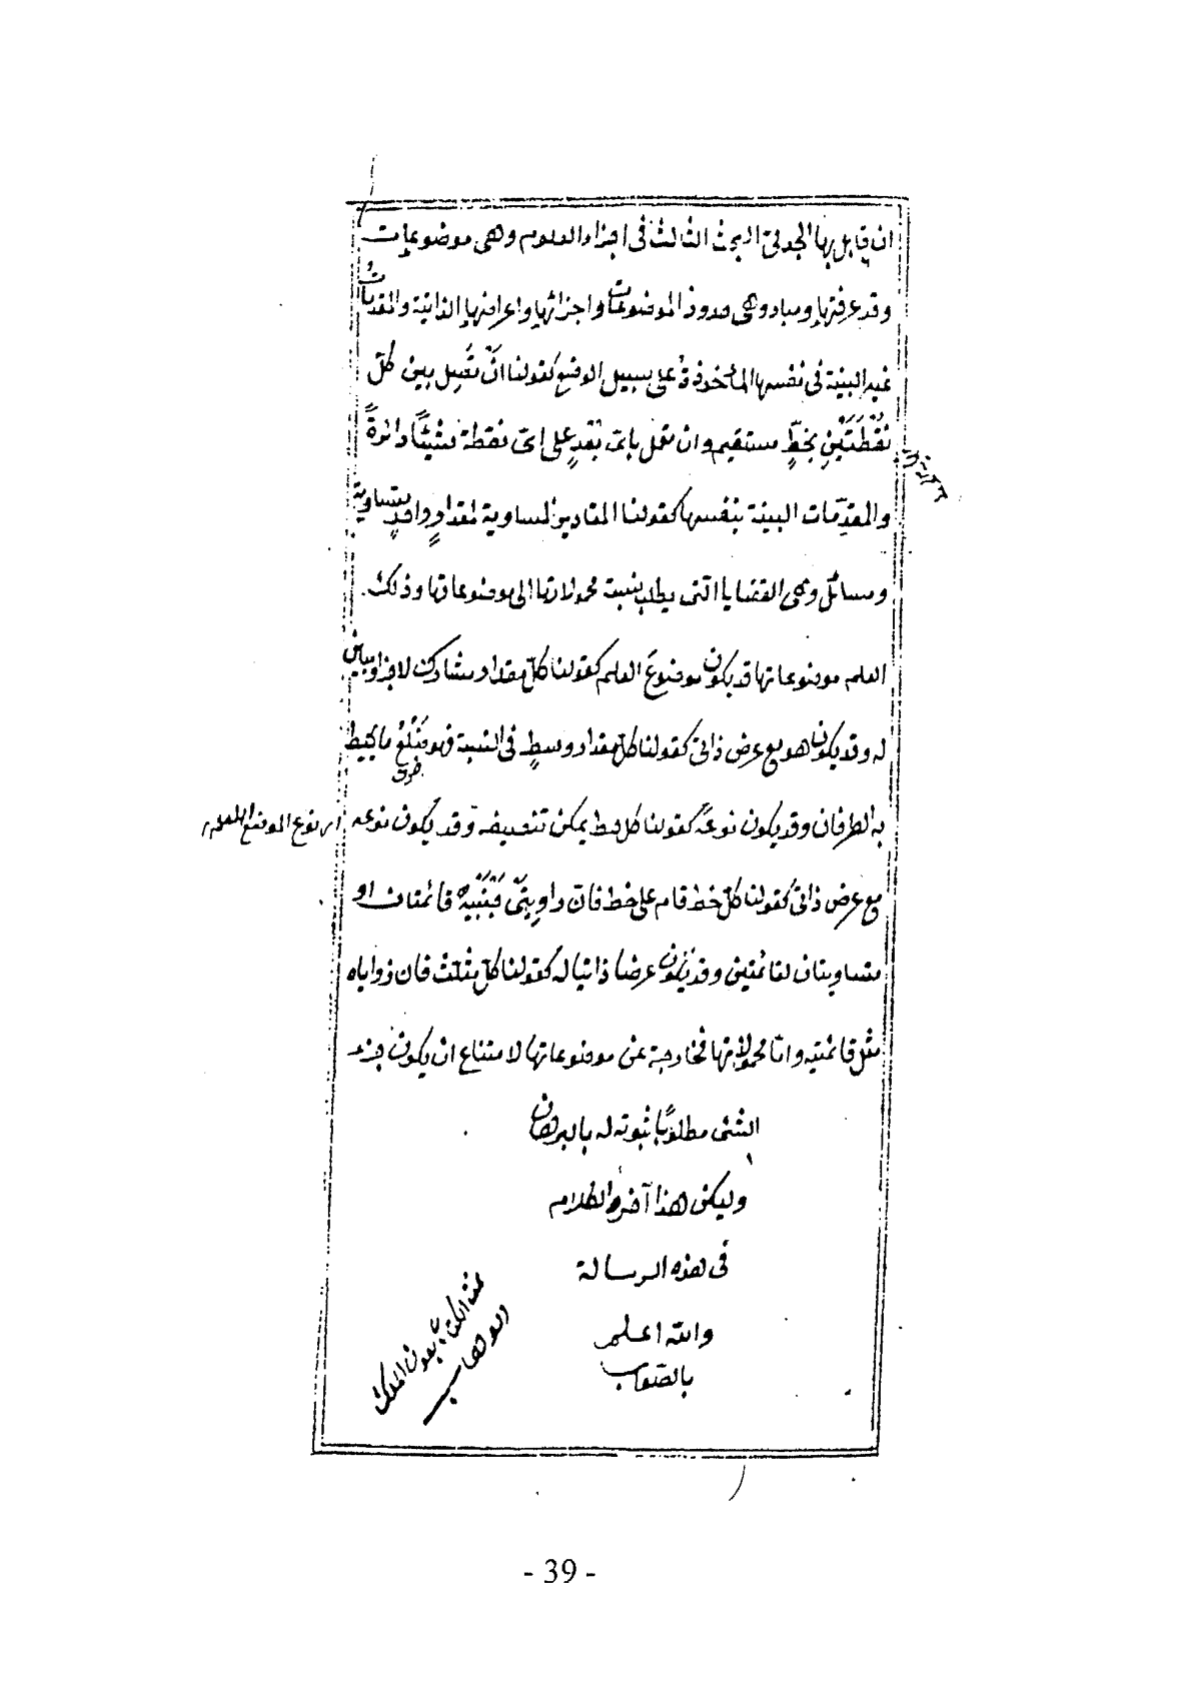 ان قابل بها الجدلى البحث الثالث فى اجزاء العلوم وهى موضوعات
وقد عرفتها ومبادو هى حدود الموضوعات واجزائها واعراضها الذاتية والمقدمات
غير البينة فى نفسها المأخوذة على سبيل الوضع كقولنا انْ نَصِل بين كلّ
نُقْطَتَيْنِ بخطٍّ مستقيم وان نعمل باىّ بُعْدٍ على اىّ نقطة شِئْنَا دائرةً
والمقدّمات البينة بنفسها كقولنا المقادير المساوية لمقدارٍ واحدٍ متساوية
ومسائل وهى القضايا التى يطلب نسبة محمولاتها الى موضوعاتها وذلك
العلم موضوعاتها قد يكون موضوعَ العلم كقولنا كلّ مقدار مشارك لاخر او مباين
له وقد يكون هو مع عرض ذاتى كقولنا كل مقدار وسطٍ فى النسبة فهو ضِلْعُ ما يحيط
به الطرفان وقد يكون نوعَهُ كقولنا كل خط يمكن تنصيفه وقد يكون نوعه
اى نوع الموضوع العلم
مع عرض ذاتى كقولنا كلّ خط قام على خط فان زاويتَىْ جَنْبَيْهِ قائمتان او
متساويتان لقائمتين وقد يكون عرضا ذاتيا له كقولنا كلّ مثلث فان زواياه
مثل قائمتين وامّا محمولاتها فخارجة عن موضوعاتها لامتناع ان يكون جزء
الشئ مطلوبًا ثبوته له بالبرهان
وليكن هذا آخر الكلام
فى هذه الرسالة
والله اعلم
بالصواب
تمت الكتاب بعون الملك
الوهاب
- 39 -